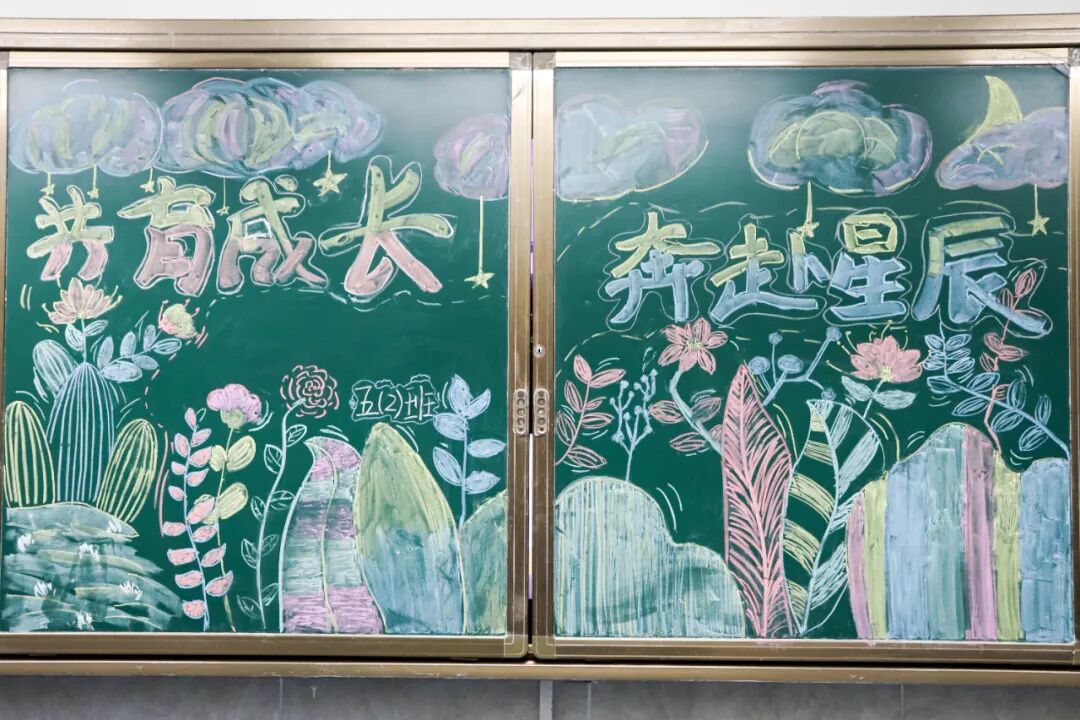 共育成长
奔赴星辰
五(2)班